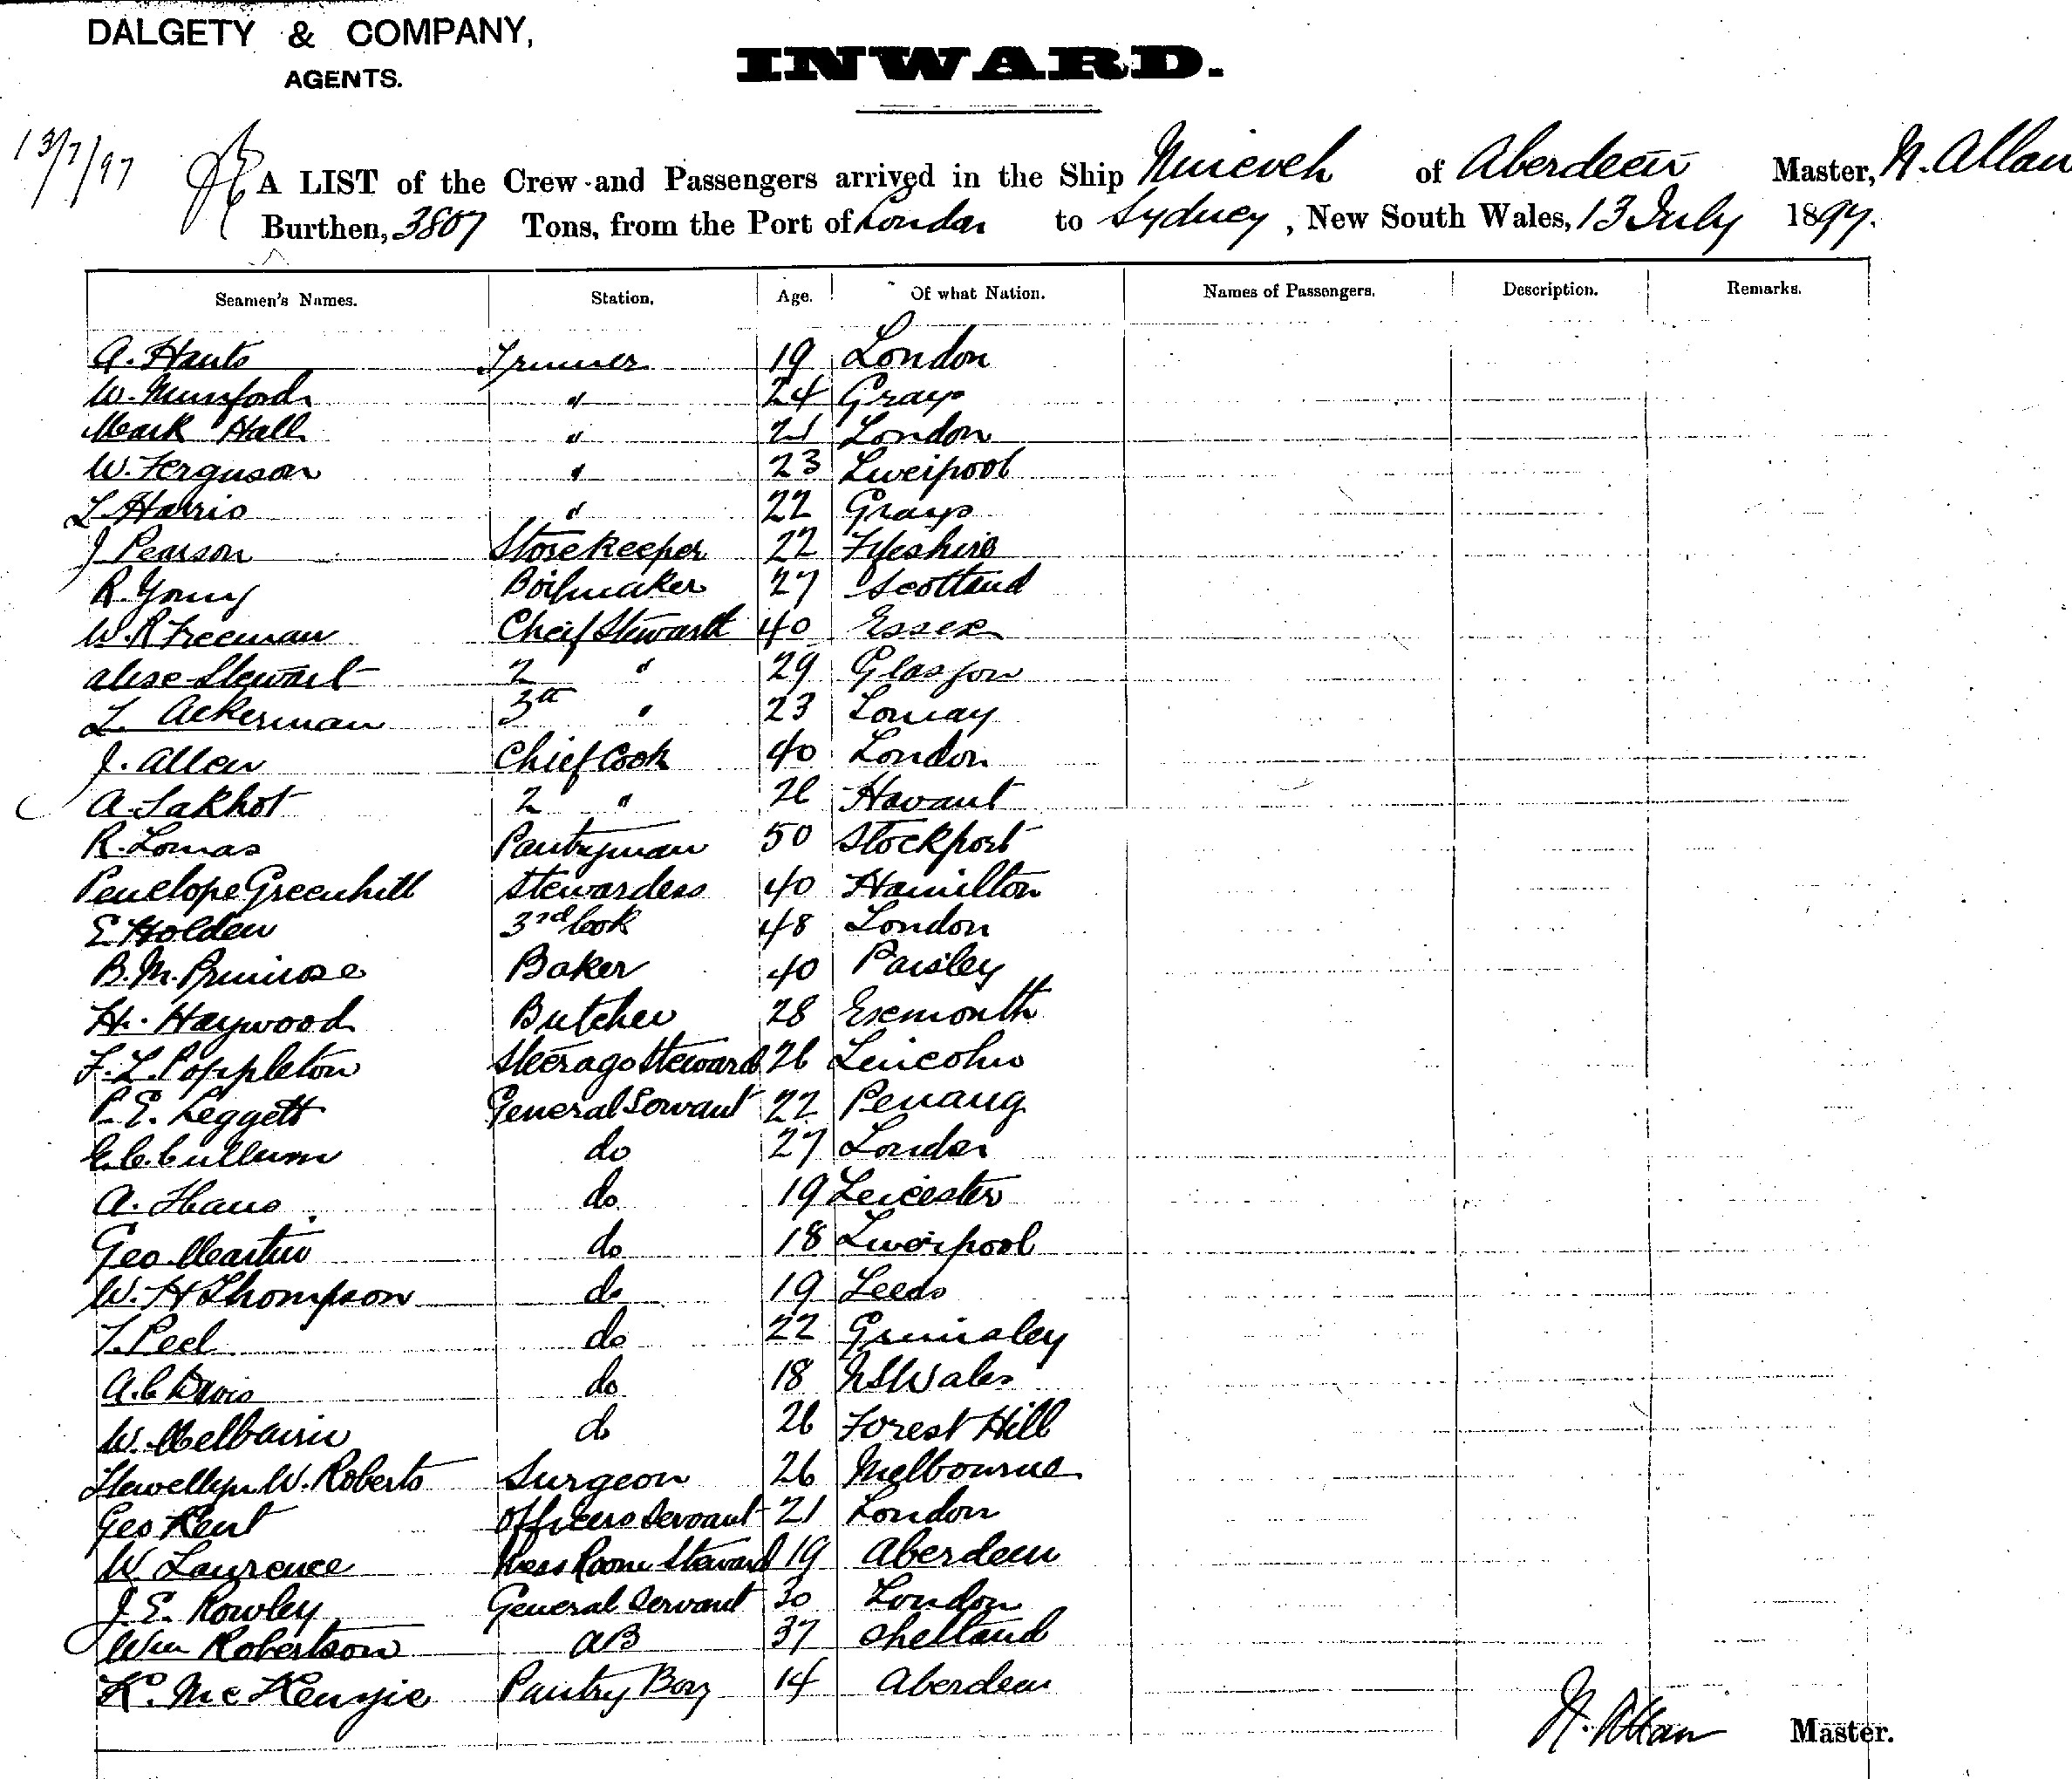 DALGETY & COMPANY,
AGENTS.
INWARD.
13/7/97
A LIST of the Crew and Passengers arrived in the Ship Nineveh of Aberdeen Master, N. Allan
Burthen, 3807 Tons, from the Port of London to Sydney, New South Wales, 13 July 1897.
Seamen's Names. Station. Age. Of what Nation. Names of Passengers. Description. Remarks.
A. Hants Trimmer 19 London
W. Mumford " 24 Grays
Mark Hall " 21 London
W. Ferguson " 23 Liverpool
L Harris " 22 Grays
J Pearson Storekeeper 22 Fifeshire
R. Young Boilmaker 27 Scotland
W. R Freeman Cheif Steward 40 Essex
Alexe Stewart 2 " 29 Glasgow
L. Ackerman 3th " 23
J. Allen Chief Cook 40 London
A. 2 " 26 Havant
R. Lomas Pantryman 50 Stockport
Penelope Greenhill Stewardess 40 Hamilton
E Holden 3rd Cook 48 London
B. M. Primrose Baker 40 Paisley
H. Haywood Butcher 28 Exemonth
F. L. Poppleton Steerage Steward 26 Lincoln
P. E. Leggett General Servant 22 Penang
E. C. Cullum do 27 London
A. do 19 Leicester
Geo Martin do 18 Liverpool
W. H Thompson do 19 Leeds
T. Peel do 22 Grimsley
A. C Davis do 18 NSWales
W. do 26 Forest Hill
Llewellyn W. Roberts Surgeon 26 Melbourne
Geo Kent Officers Servant 21 London
W Laurence Mess Room Steward 19 Aberdeen
J. E. Rowley General Servant 30 London
Wm Robertson AB 37 Shetland
K. McKenzie Pantry Boy 14 Aberdeen
N. Allan Master.